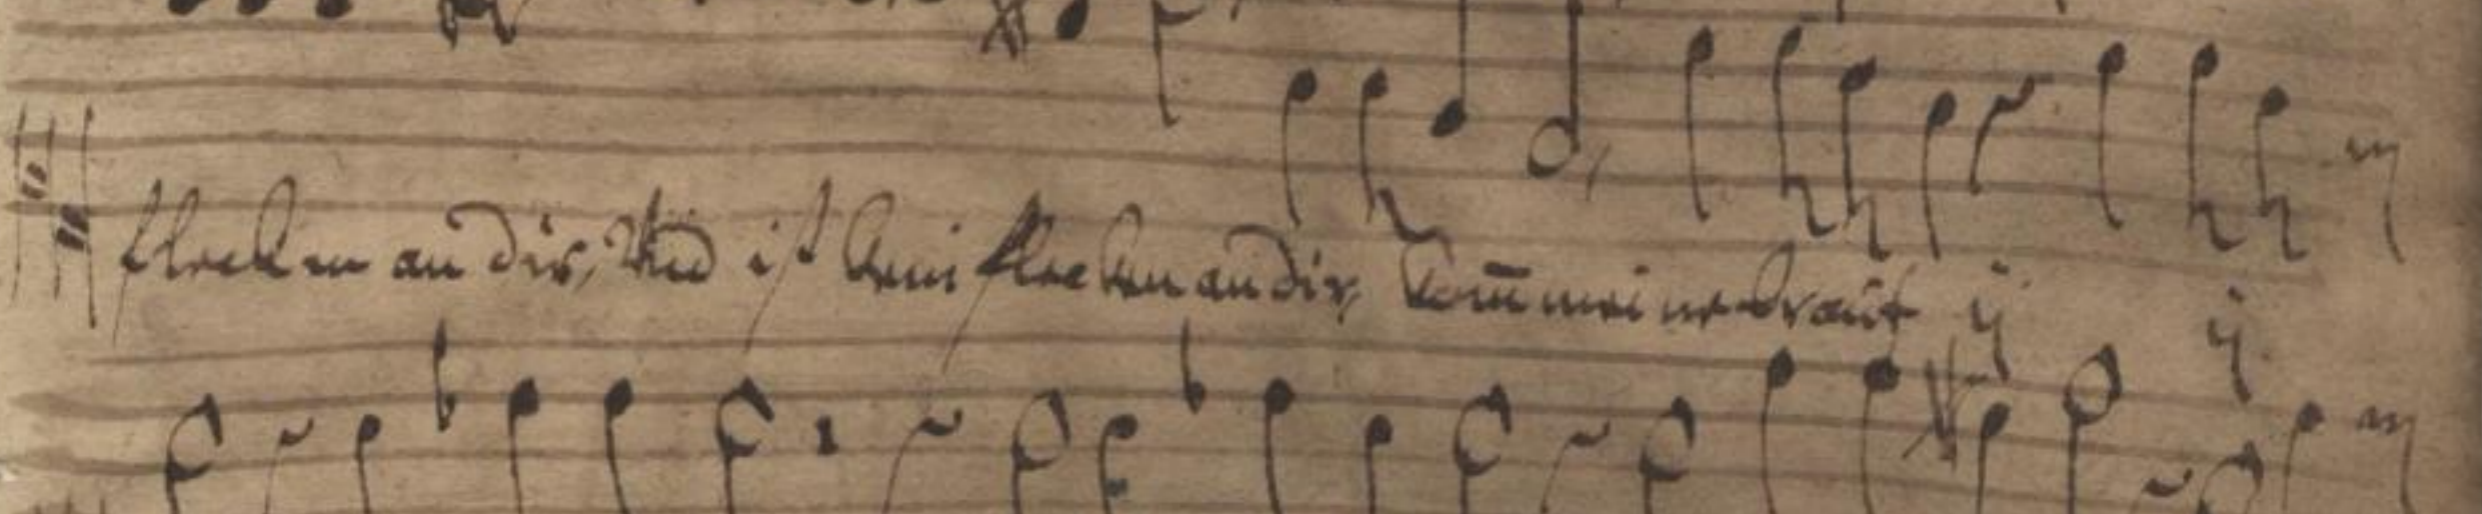 flecken an dir, Und ist kein flecken an dir, kom̄ meine braut ij ij